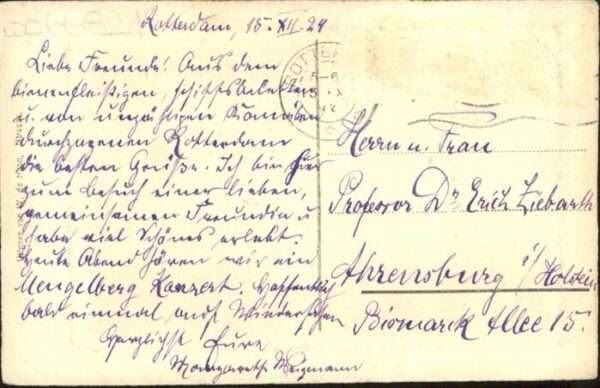 Rotterdam, 15. XII. 24
Liebe Freunde! Aus dem
bienenfleißigen, schiffsbelebten
u. von unzähligen Kanälen
durchzogenen Rotterdam
die besten Grüße. Ich bin hier
zum Besuch einer lieben,
gemeinsamen Freundin u.
habe viel Schönes erlebt.
Heute Abend hören wir ein
Mengelberg Konzert. Hoffentlich
bald einmal auf Wiedersehen
Herzlichst Eure
Margarethe
Herrn u. Frau
Professor Dr Erich Ziebarth
Ahrensburg i/Holstein
Bismarck Allee 15.